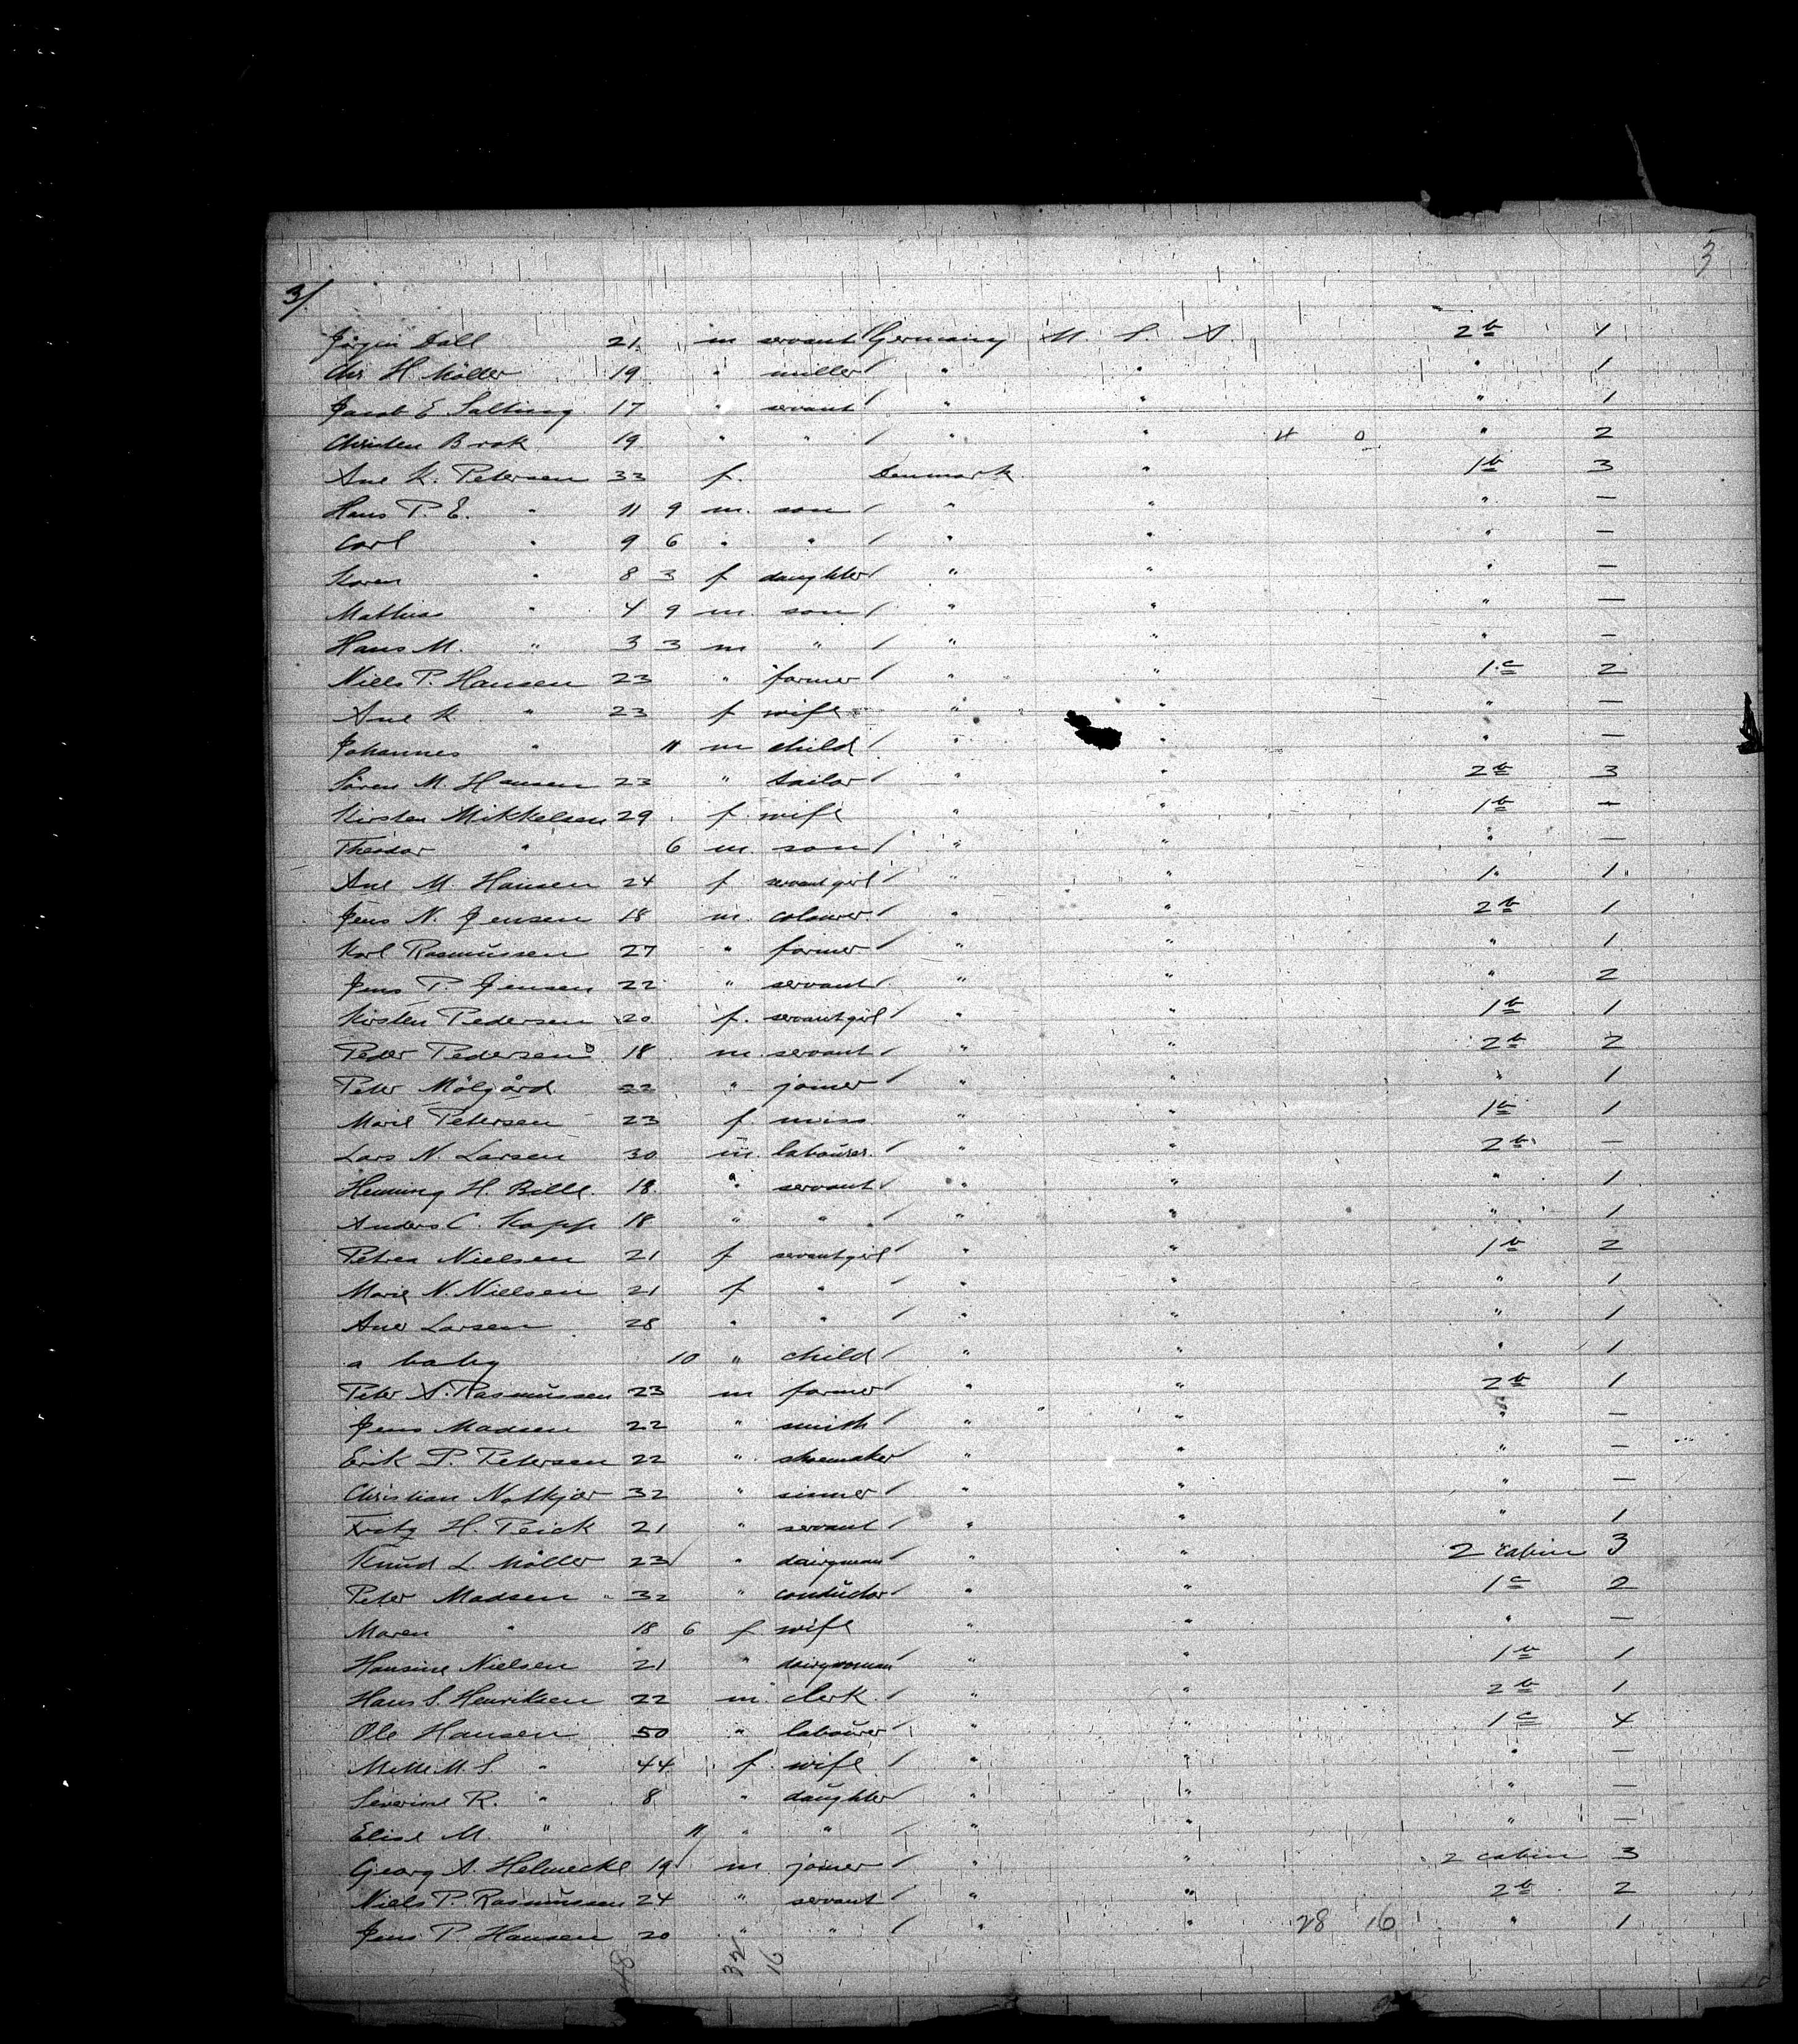 3
3/.
Jörgen Dall 21 m servant Germany U. S. A. 2b 1
Chr H. Möller 19 " miller / " " " 1
Jacob E Salting 17 " servant / " " " 1
Christen Brok 19 " " / " " 4 0 " 2
Ane K. Petersen 33 f. Denmark " 1b 3
Hans P. E. " 11 9 m. son / " " " —
Carl " 9 6 " " / " " " —
Karen " 8 3 f daughter / " " " —
Mathias " 4 9 m. son / " " " —
Hans M. " 3 3 m " / " " " —
Niels P. Hansen 23 " farmer / " " 1c 2
Ane K " 23 f wife " " " —
Johannes " 11 m child / " " " —
Sören M. Hansen 23 " tailor / " " 2b 3
Kirsten Mikkelsen 29 f. wife " " 1b —
Theodor " 6 m. son / " " " —
Ane M. Hansen 24 f servantgirl / " " 1" 1"
Jens N. Jensen 18 m. colourer / " " 2b 1
Karl Rasmussen 27 " farmer / " " " 1
Jens P. Jensen 22 " servant / " " " 2
Kirsten Pedersen 20 f. servantgirl / " " 1b 1
Peder Pedersen 18 m. servant / " " 2b 2
Peter Mölgård 22 " joiner / " " " 1
Marie Petersen 23 f. miss " " 1b 1
Lars N. Larsen 30 m. labourer / " " 2b —
Henning H. Bille 18 " servant / " " " 1
Anders C. Kapp 18 " " / " " " 1
Petrea Nielsen 21 f servantgirl / " " 1b 2
Marie N. Nielsen 21 f " / " " " 1
Ane Larsen 28 " " / " " " 1
a baby 10 " child / " " " 1
Peter A. Rasmussen 23 m farmer / " " 2b 1
Jens Madsen 22 " smith / " " " —
Erik P. Petersen 22 " shoemaker / " " " —
Christian Notkjær 32 " / " " " —
Fritz H. Peick 21 " servant / " " " 1
Knud L Möller 23 / " dairyman / " " 2 cabin 3
Peter Madsen 32 " conductor / " " 1c 2
Maren " 18 6 f wife " " " —
Hansine Nielsen 21 " dairywoman / " " 1b 1
Hans S. Henriksen 22 m. clerk / " " 2b 1
Ole Hansen 50 " labourer / " " 1c 4
Mette M. S. " 44 f. wife / " " " —
Severine R. " 8 " daughter / " " " —
Elise M. " 11 " " / " " " —
Georg A. Helmecke 19 / m joiner / " " 2 cabin 3
Niels P. Rasmussen 24 " servant / " " 2b 2
Jens P Hansen 20 " " / " " 28 16 " 1
48 32 16